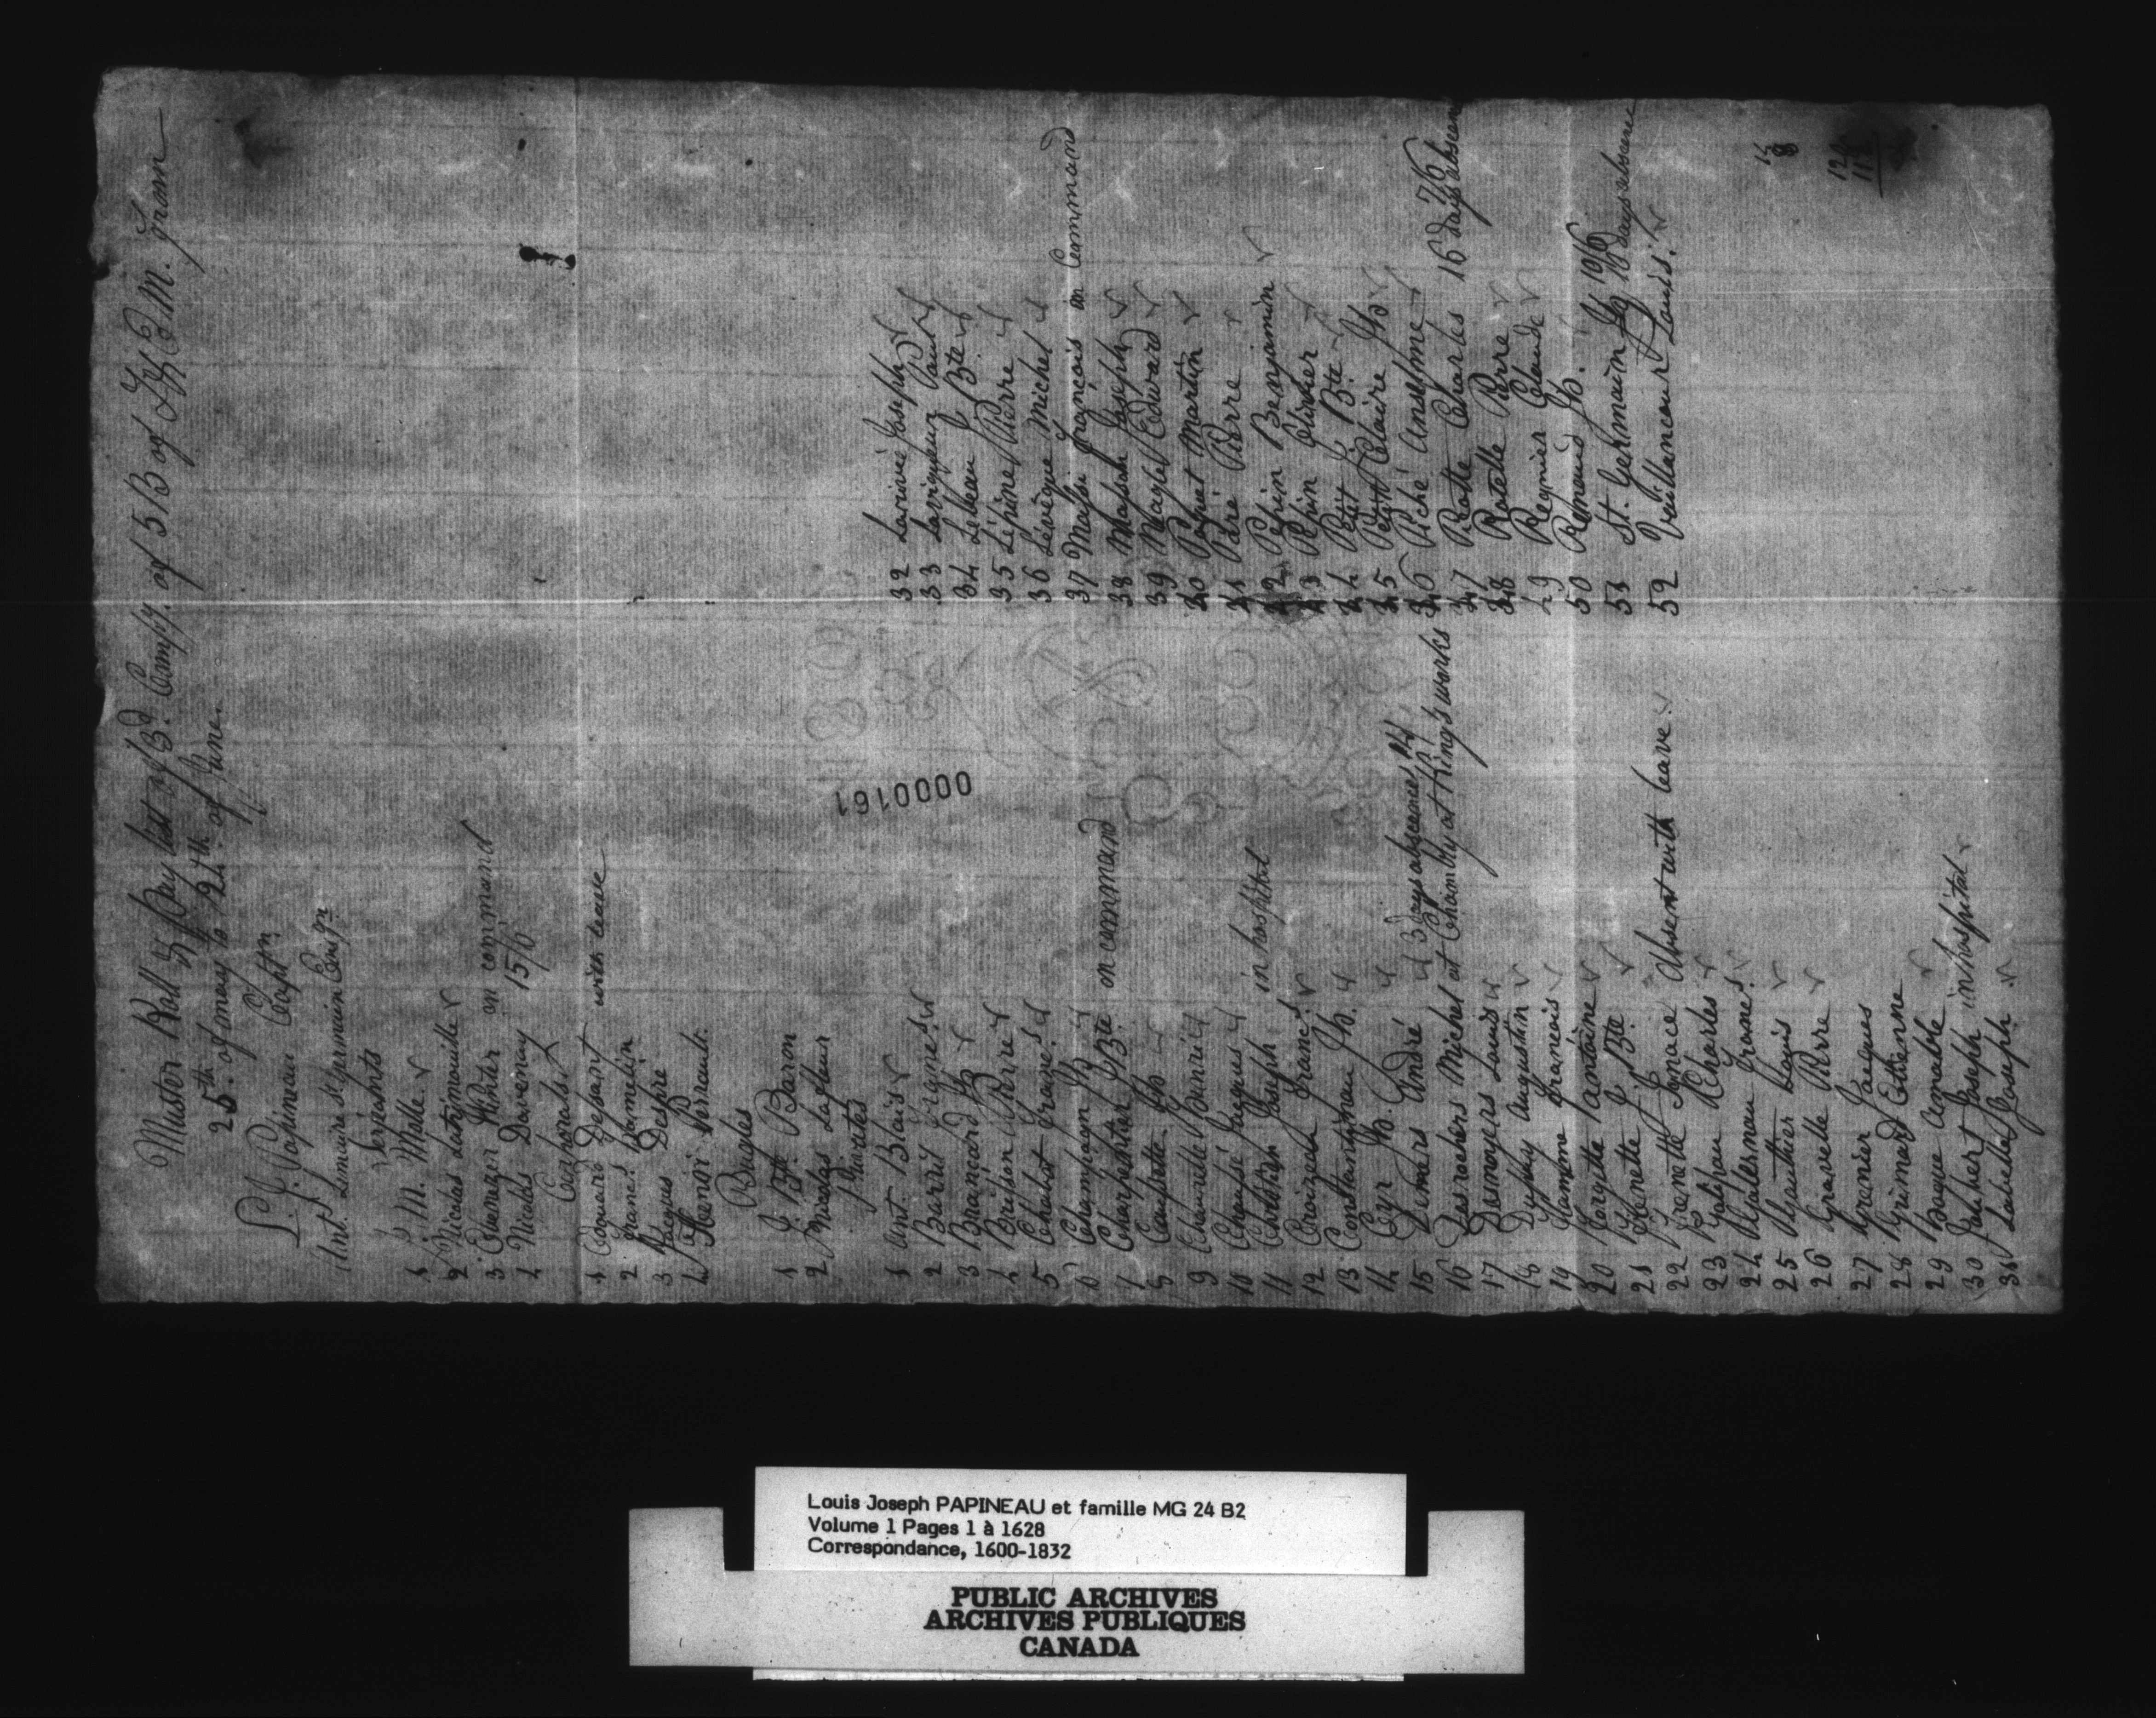 Muster Roll & Pay list of 3d. Compy. of 5 B of L. E. M. from
25th. of may to 24th. of June.
L. J. Papineau Captn
Ant. Lemaire St. germain Ensign
Serjeants
1 L. M. Molle √
2 Nicolas Latrimouille √
3 Ebenezer Winter on command
4 Nicolas Davenay 15/6
Corporals
1 Edouard Delsart with leave
2 Frans. Hamelin
3 Jacques Despré
4 Honoré Perrault.
Bugles
1 J. Bte. Baron
2 Nicolas Lafleur
Privates
1 Ant. Blais √
2 Barril Vigne √
3 Brancard Js √
4 Brison Pierre √
5 Chabot Frans. √
6 Champagn √
7 Charpentier J Bte. on command
8 Caupette Js. √
9 Chanville Henri √
10 Chaussé Jacques √
11 Chrétien Joseph in hospital
12 Croizeau Frans. √
13 Constantinau Js. √
14 Cyr Js. √
15 Demers André √ 3 days absence 14
16 Desrochers Michel at Chambly at King's works
17 Desnoyers Louis √
18 Dupuy Augustin √
19 Famme francois √
20 Forgette Antoine √
21 Frenette J Bte. √
22 Frenette Ignace Absent with leave. √
23 Galipau Charles √
24 Galerneau Frans. √
25 Gauthier Louis √
26 Gravelle Pierre √
27 Grenier Jacques
28 Grimard Etienne
29 Bague Amable √
30 Jalbert Joseph in hospital √
31 Labelle Joseph √
32 Larivié Joseph √
33 Lavigneur Paul √
34 Lebeau J. Bte √
35 Lépine Pierre √
36 Lévèque Michel √
37 Mallou François on Command
38 Masson Joseph √
39 Nagle Edward √
40 Paquet Martin √
41 Paré Pierre √
42 Pepin Benjamin √
43 Pepin Olivier √
44 Petit J. Bte √
45 Petit Claire Js √
46 Piché Anselme √
47 Ratte Charles 16 days absence 7/6
48 Ratelle Pierre √
49 Regnier Claude √
50 Renaud Js. 10/6
51 St. Germain Js 18 days absence
52 Veillancourt Louis. √
15
8
12
11
0000161
Louis Joseph PAPINEAU et famille MG 24 B2
Volume 1 Pages 1 à 1628
Correspondance, 1600-1832
PUBLIC ARCHIVES
ARCHIVES PUBLIQUES
CANADA